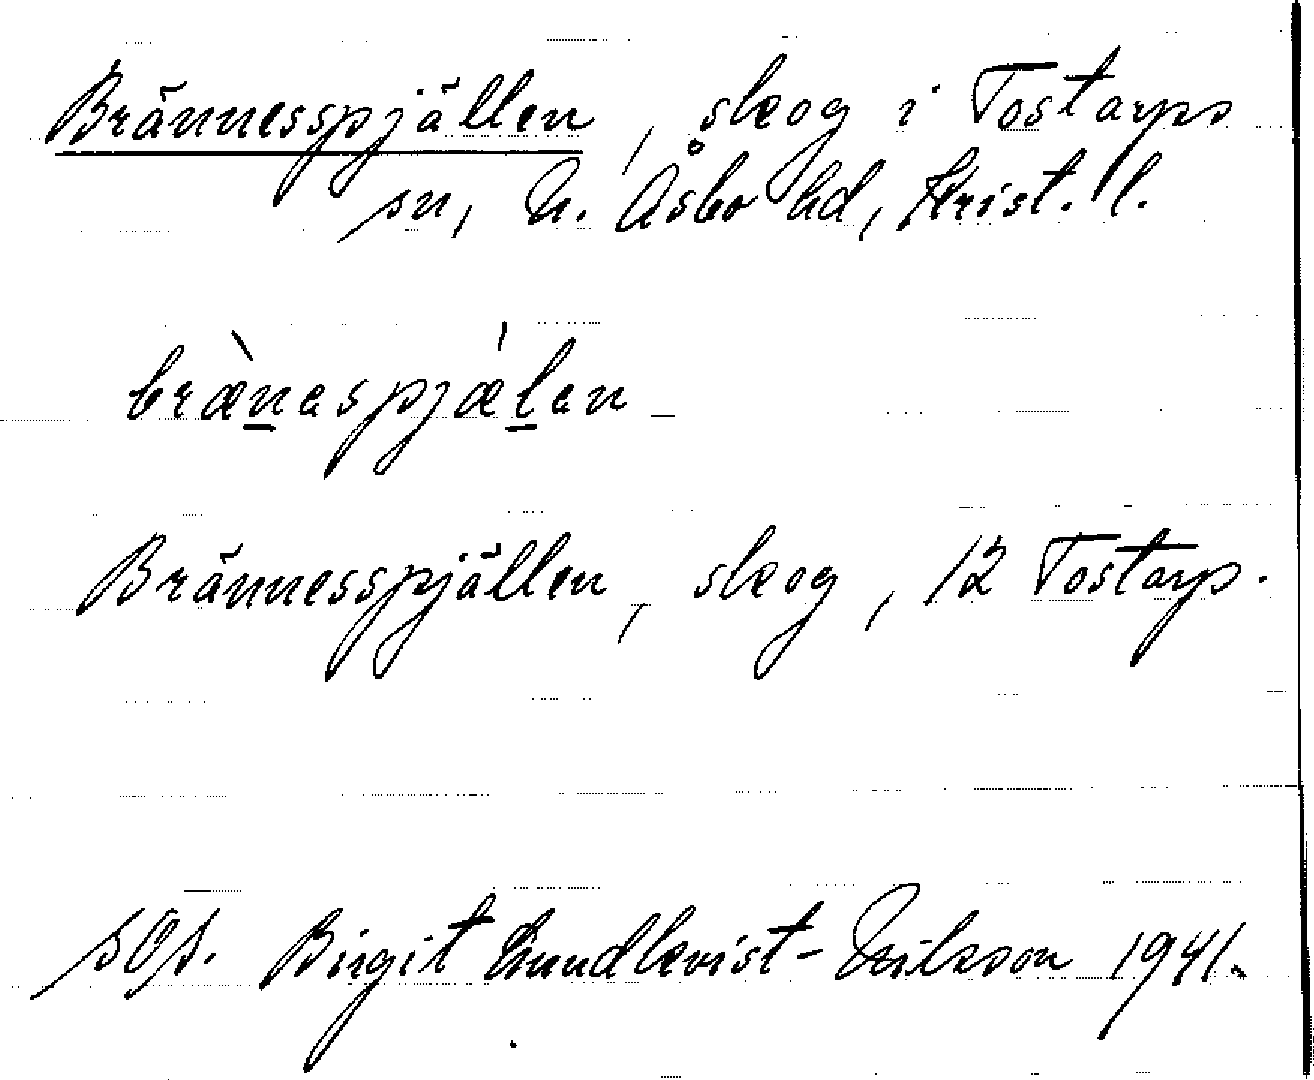 Brännesspjällen, skog i Tostarps
sn, N. Åsbo hd, Krist. l.
bræ̀n̲espjæ̍l̲en
Brännesspjällen, skog, 12 Tostarp.
Birgit Lundkvist-Nilsson 1941.